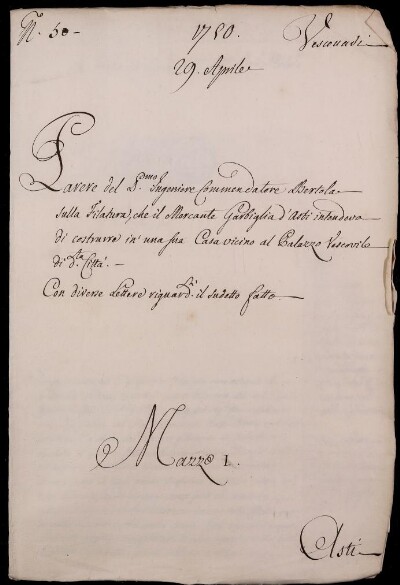 N.° 50
1750.
Vescovadi
29. Aprile
Parere del S.r Ingeniere Commendatore Bertola
sulla Filatura, che il Mercante Garbiglia d'Asti intendeva
di costrurre in una sua Casa vicino al Palazzo Vescovile
di d.ta Città. —
Con diverse Lettere riguard.ti il sudetto fatto
Mazzo I.
Asti